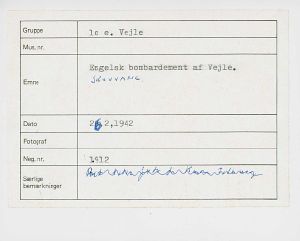 Gruppe 1c e. Vejle
Mus. nr.
Engelsk bombardement af Vejle.
Emne SKOVVANG
Dato 26 2,1942
Fotograf
Neg. nr. 1912
Særlige
bemærkninger